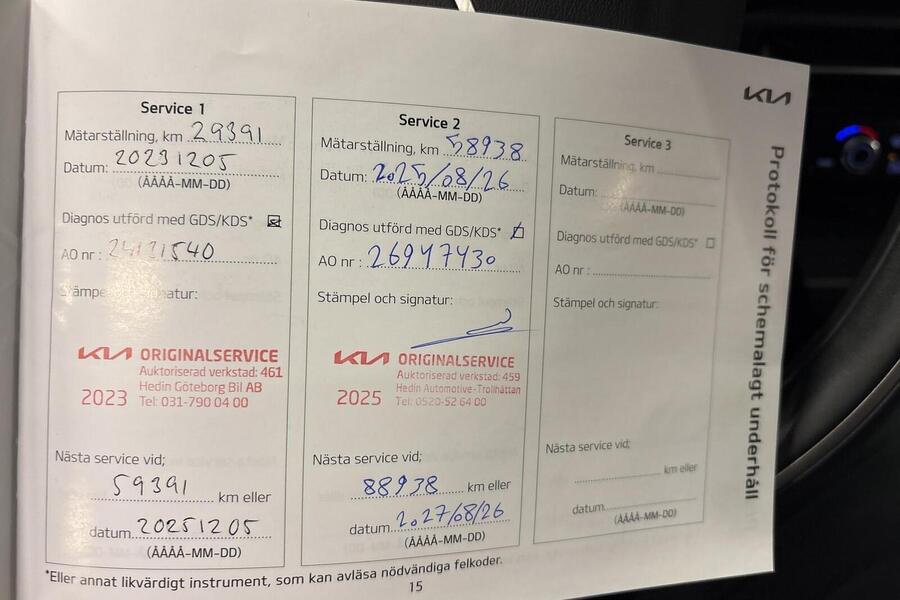 KIA
Protokoll för schemalagt underhåll
Service 1
Mätarställning, km 29391
Datum: 20231205
(ÅÅÅÅ-MM-DD)
Diagnos utförd med GDS/KDS*
AO nr : 24121540
Stämpel och signatur:
KIA ORIGINALSERVICE
Auktoriserad verkstad: 461
Hedin Göteborg Bil AB
2023 Tel: 031-790 04 00
Nästa service vid;
59391 km eller
datum 20251205
(ÅÅÅÅ-MM-DD)
Service 2
Mätarställning, km 58938
Datum: 2025/08/26
(ÅÅÅÅ-MM-DD)
Diagnos utförd med GDS/KDS*
AO nr : 26947430
Stämpel och signatur:
KIA ORIGINALSERVICE
Auktoriserad verkstad: 459
Hedin Automotive-Trollhättan
2025 Tel: 0520-52 64 00
Nästa service vid;
88938 km eller
datum 2027/08/26
(ÅÅÅÅ-MM-DD)
Service 3
Mätarställning, km
Datum:
(ÅÅÅÅ-MM-DD)
Diagnos utförd med GDS/KDS*
AO nr :
Stämpel och signatur:
Nästa service vid;
km eller
datum
(ÅÅÅÅ-MM-DD)
*Eller annat likvärdigt instrument, som kan avläsa nödvändiga felkoder.
15